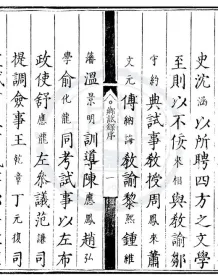 史沈以所聘四方之文學
至則以不佞來相與教諭鄒
守約典試事教授周鳳來蕭
文元傅納誨教諭黎熙鍾維
試錄序
藩溫景明訓導陳應鳳趙弘
學俞化龍同考試事以左布
政使舒應龍左參議范謙司
提調僉事王乾章丁元復司